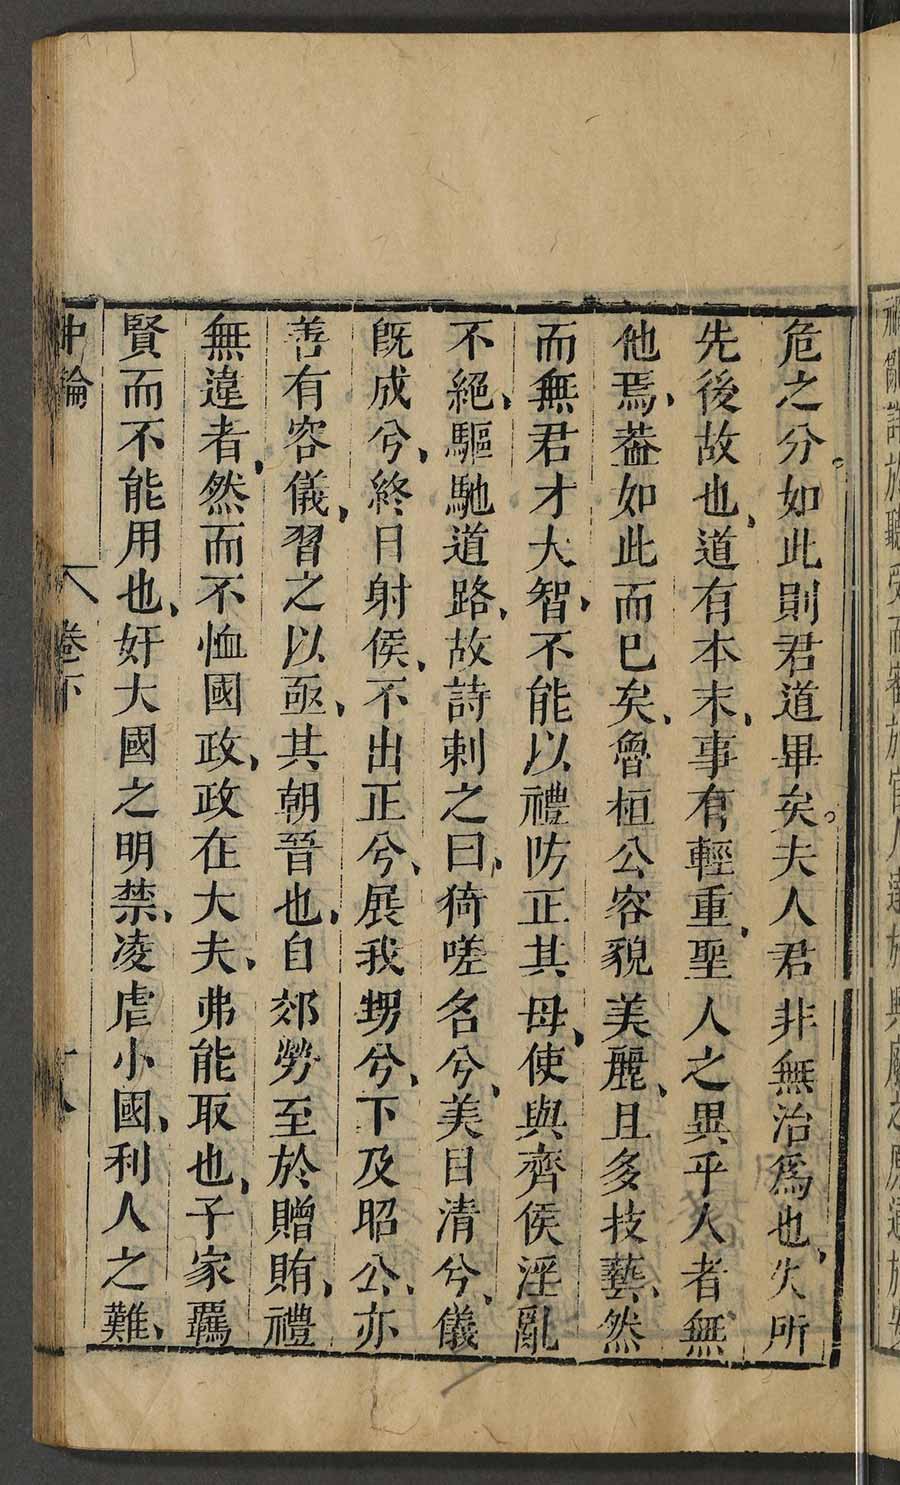 危之分。如此則君道畢矣。夫人君非無治爲也、失所
先後故也、道有本末、事有輕重、聖人之異乎人者無
他焉、葢如此而已矣、魯桓公容貌美麗、且多技藝、然
而無君才大智、不能以禮防正其母、使與齊侯淫亂
不絕、驅馳道路、故詩刺之曰、猗嗟名兮、美目清兮、儀
旣成兮、終日射侯、不出正兮、展我甥兮、下及昭公、亦
善有容儀、習之以亟、其朝晉也、自郊勞至於贈賄、禮
無違者、然而不恤國政、政在大夫、弗能取也、子家羈
賢而不能用也、奸大國之明禁、凌虐小國、利人之難、
中論 卷下